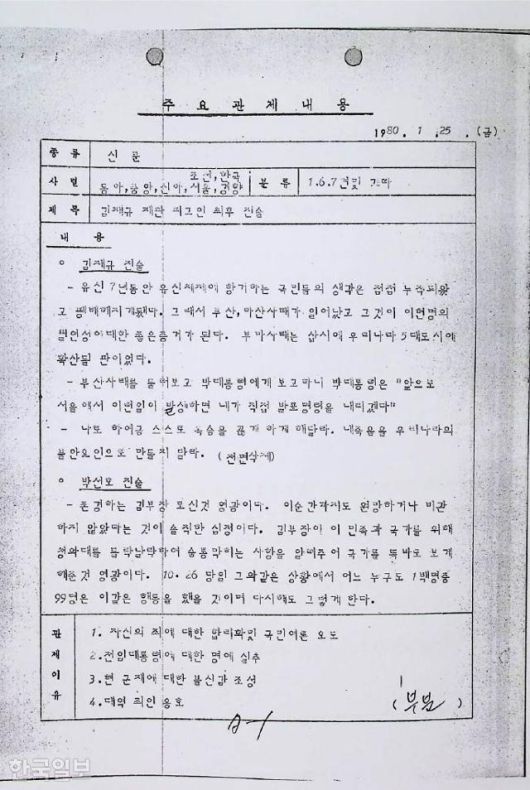 주요관제내용
1980. 1. 25. (금)
종류 신문
조선,한국
사별 동아,중앙,신아,서울,경향 분류 1.6.7건및 기타
제목 김재규 재판 피고인 최후 진술
내용
○ 김재규 진술
- 유신 7년동안 유신체제에 항거하는 국민들의 생각은 점점 누적되왔
고 팽배해지게됐다. 그래서 부산,마산사태가 일어났고 그것이
필연성에대한 좋은증거가 된다. 부마사태는 삽시에 우리나라 5대도시에
확산될 판이었다.
- 부산사태를 둘러보고 박대통령에게 보고하니 박대통령은 "앞으로
서울에서 이런일이 발생하면 내가 직접 발포명령을 내리겠다"
- 나로 하여금 스스로 목숨을 끊게 하게 해달라. 내죽음을 우리나라의
불안요인으로 만들지 말라. (전면삭제)
○ 박선호 진술
- 존경하는 김부장 모신것 영광이다. 이순간까지도 원망하거나 비관
하지 않았다는 것이 솔직한 심정이다. 김부장이 이 민족과 국가를 위해
청와대를 들락날락하여 숨통막히는 사항을 알려주어 국가를 똑바로 보게
해준것 영광이다. 10.26 당일 그와같은 상황에서 어느 누구도 1백명중
99명은 이같은 행동을 했을 것이며 다시해도 그렇게 한다.
관제이유
1. 자신의 죄에 대한 합리화및 국민여론 오도
2. 전임대통령에 대한 명예 실추
3. 현 군재에 대한 불신감 조성
4. 대역 죄인 옹호
(부분)
A-1
한국일보